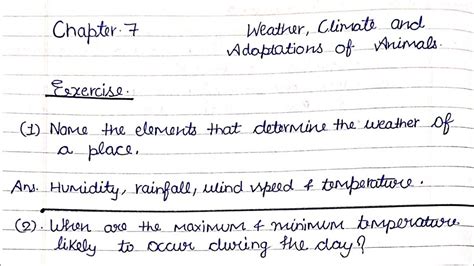 Chapter.7
Weather, Climate and
Adaptations of Animals.
Exercise.
(1) Name the elements that determine the weather of
a place.
Ans. Humidity, rainfall, wind speed & temperature.
(2). When are the maximum & minimum temperature
likely to occur during the day?